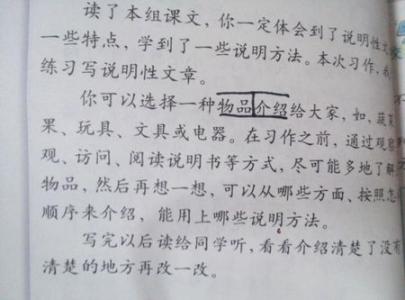 读了本组课文，你一定体会到了说明性文
一些特点，学到了一些说明方法。本次习作，我
练习写说明性文章。
你可以选择一种物品介绍给大家，如，蔬菜
果、玩具、文具或电器。在习作之前，通过观察
观、访问、阅读说明书等方式，尽可能多地了解
物品，然后再想一想，可以从哪些方面、按照怎
顺序来介绍，能用上哪些说明方法。
写完以后读给同学听，看看介绍清楚了没有
清楚的地方再改一改。